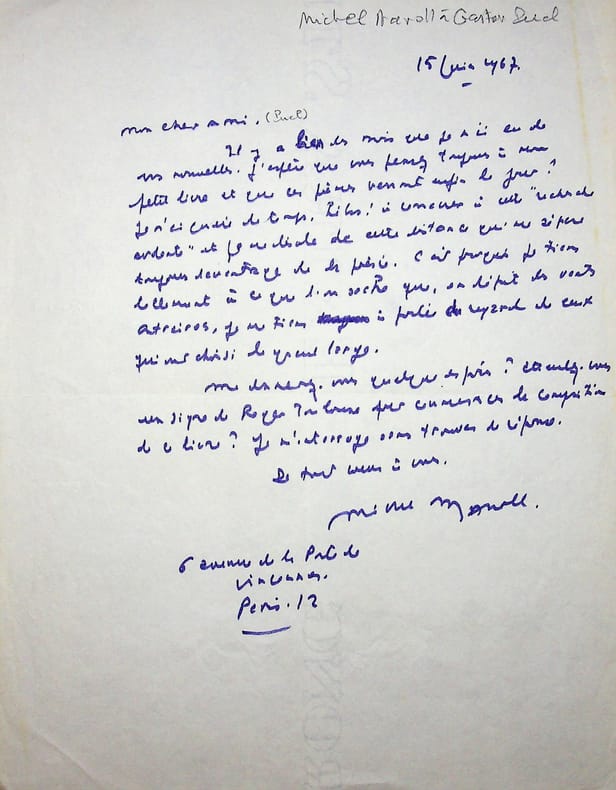 Michel Manoll à Gaston Puel
15 Juin 1967.
mon cher ami. (Puel)
Il y a bien des mois que je n'ai eu de
vos nouvelles. J'espère que vous pensez toujours à mon
petit livre et que ces poèmes verront enfin le jour?
Je n'ai guère de temps, hélas! à consacrer à cette "recherche
ardente" et je me désole de cette distance qui me sépare
toujours davantage de la poésie. C'est pourquoi je tiens
tellement à ce que l'on sache que, en dépit des vents
contraires, je me tiens à portée du regard de ceux
qui ont choisi le grand large.
Me donnerez-vous quelque espoir? attendez-vous
un signe de Roger Toulouse pour commencer la composition
de ce livre? Je m'interroge sans trouver de réponse.
De tout cœur à vous.
Michel Manoll.
6 avenue de la Porte de
Vincennes.
Paris. 12